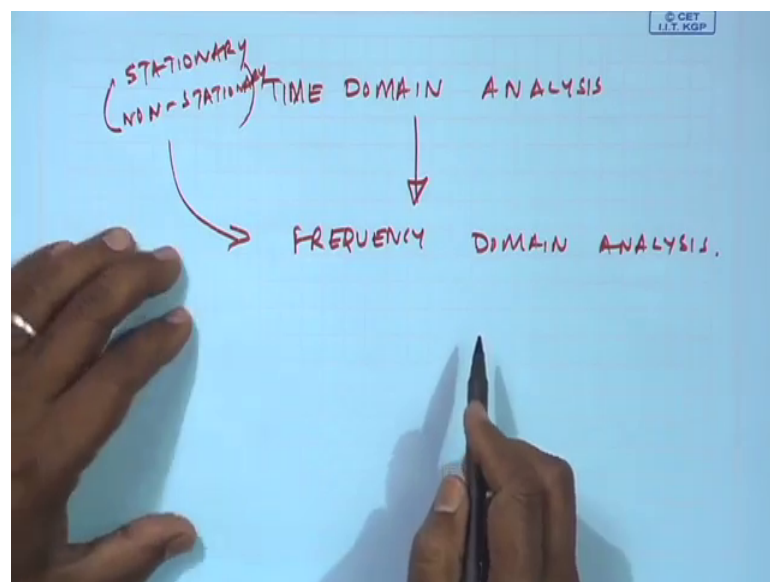 © CET
I.I.T. KGP
STATIONARY
NON-STATIONARY
TIME DOMAIN ANALYSIS
FREQUENCY DOMAIN ANALYSIS.